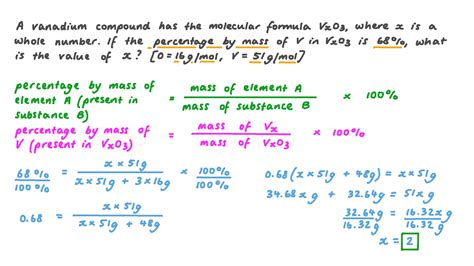 A vanadium compound has the molecular formula VxO3, where x is a
whole number. If the percentage by mass of V in VxO3 is 68%, what
is the value of x? [O=16g/mol, V=51g/mol]
percentage by mass of
element A (present in
substance B) = mass of element A / mass of substance B × 100%
percentage by mass of
V (present in VxO3) = mass of Vx / mass of VxO3 × 100%
68% / 100% = x × 51g / x × 51g + 3 × 16g × 100% / 100%
0.68 = x × 51g / x × 51g + 48g
0.68(x × 51g + 48g) = x × 51g
34.68x g + 32.64g = 51x g
32.64g / 16.32 g = 16.32x g / 16.32 g
x = 2